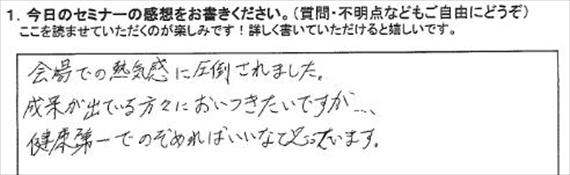 1. 今日のセミナーの感想をお書きください。(質問・不明点などもご自由にどうぞ)
ここを読ませていただくのが楽しみです！詳しく書いていただけると嬉しいです。
会場での熱気感に圧倒されました。
成果が出ている方々においつきたいですが...、
健康第一でのぞめればいいなと思っています。